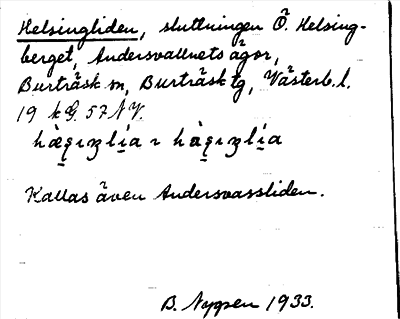 Helsingliden, sluttningen Ö. Helsing-
berget, Andersvallnets ägor,
Burträsk sn, Burträsk tg, Västerb. l.
19 kG. 57 NV.
Kallas även Andersvassliden.
B. 1933.